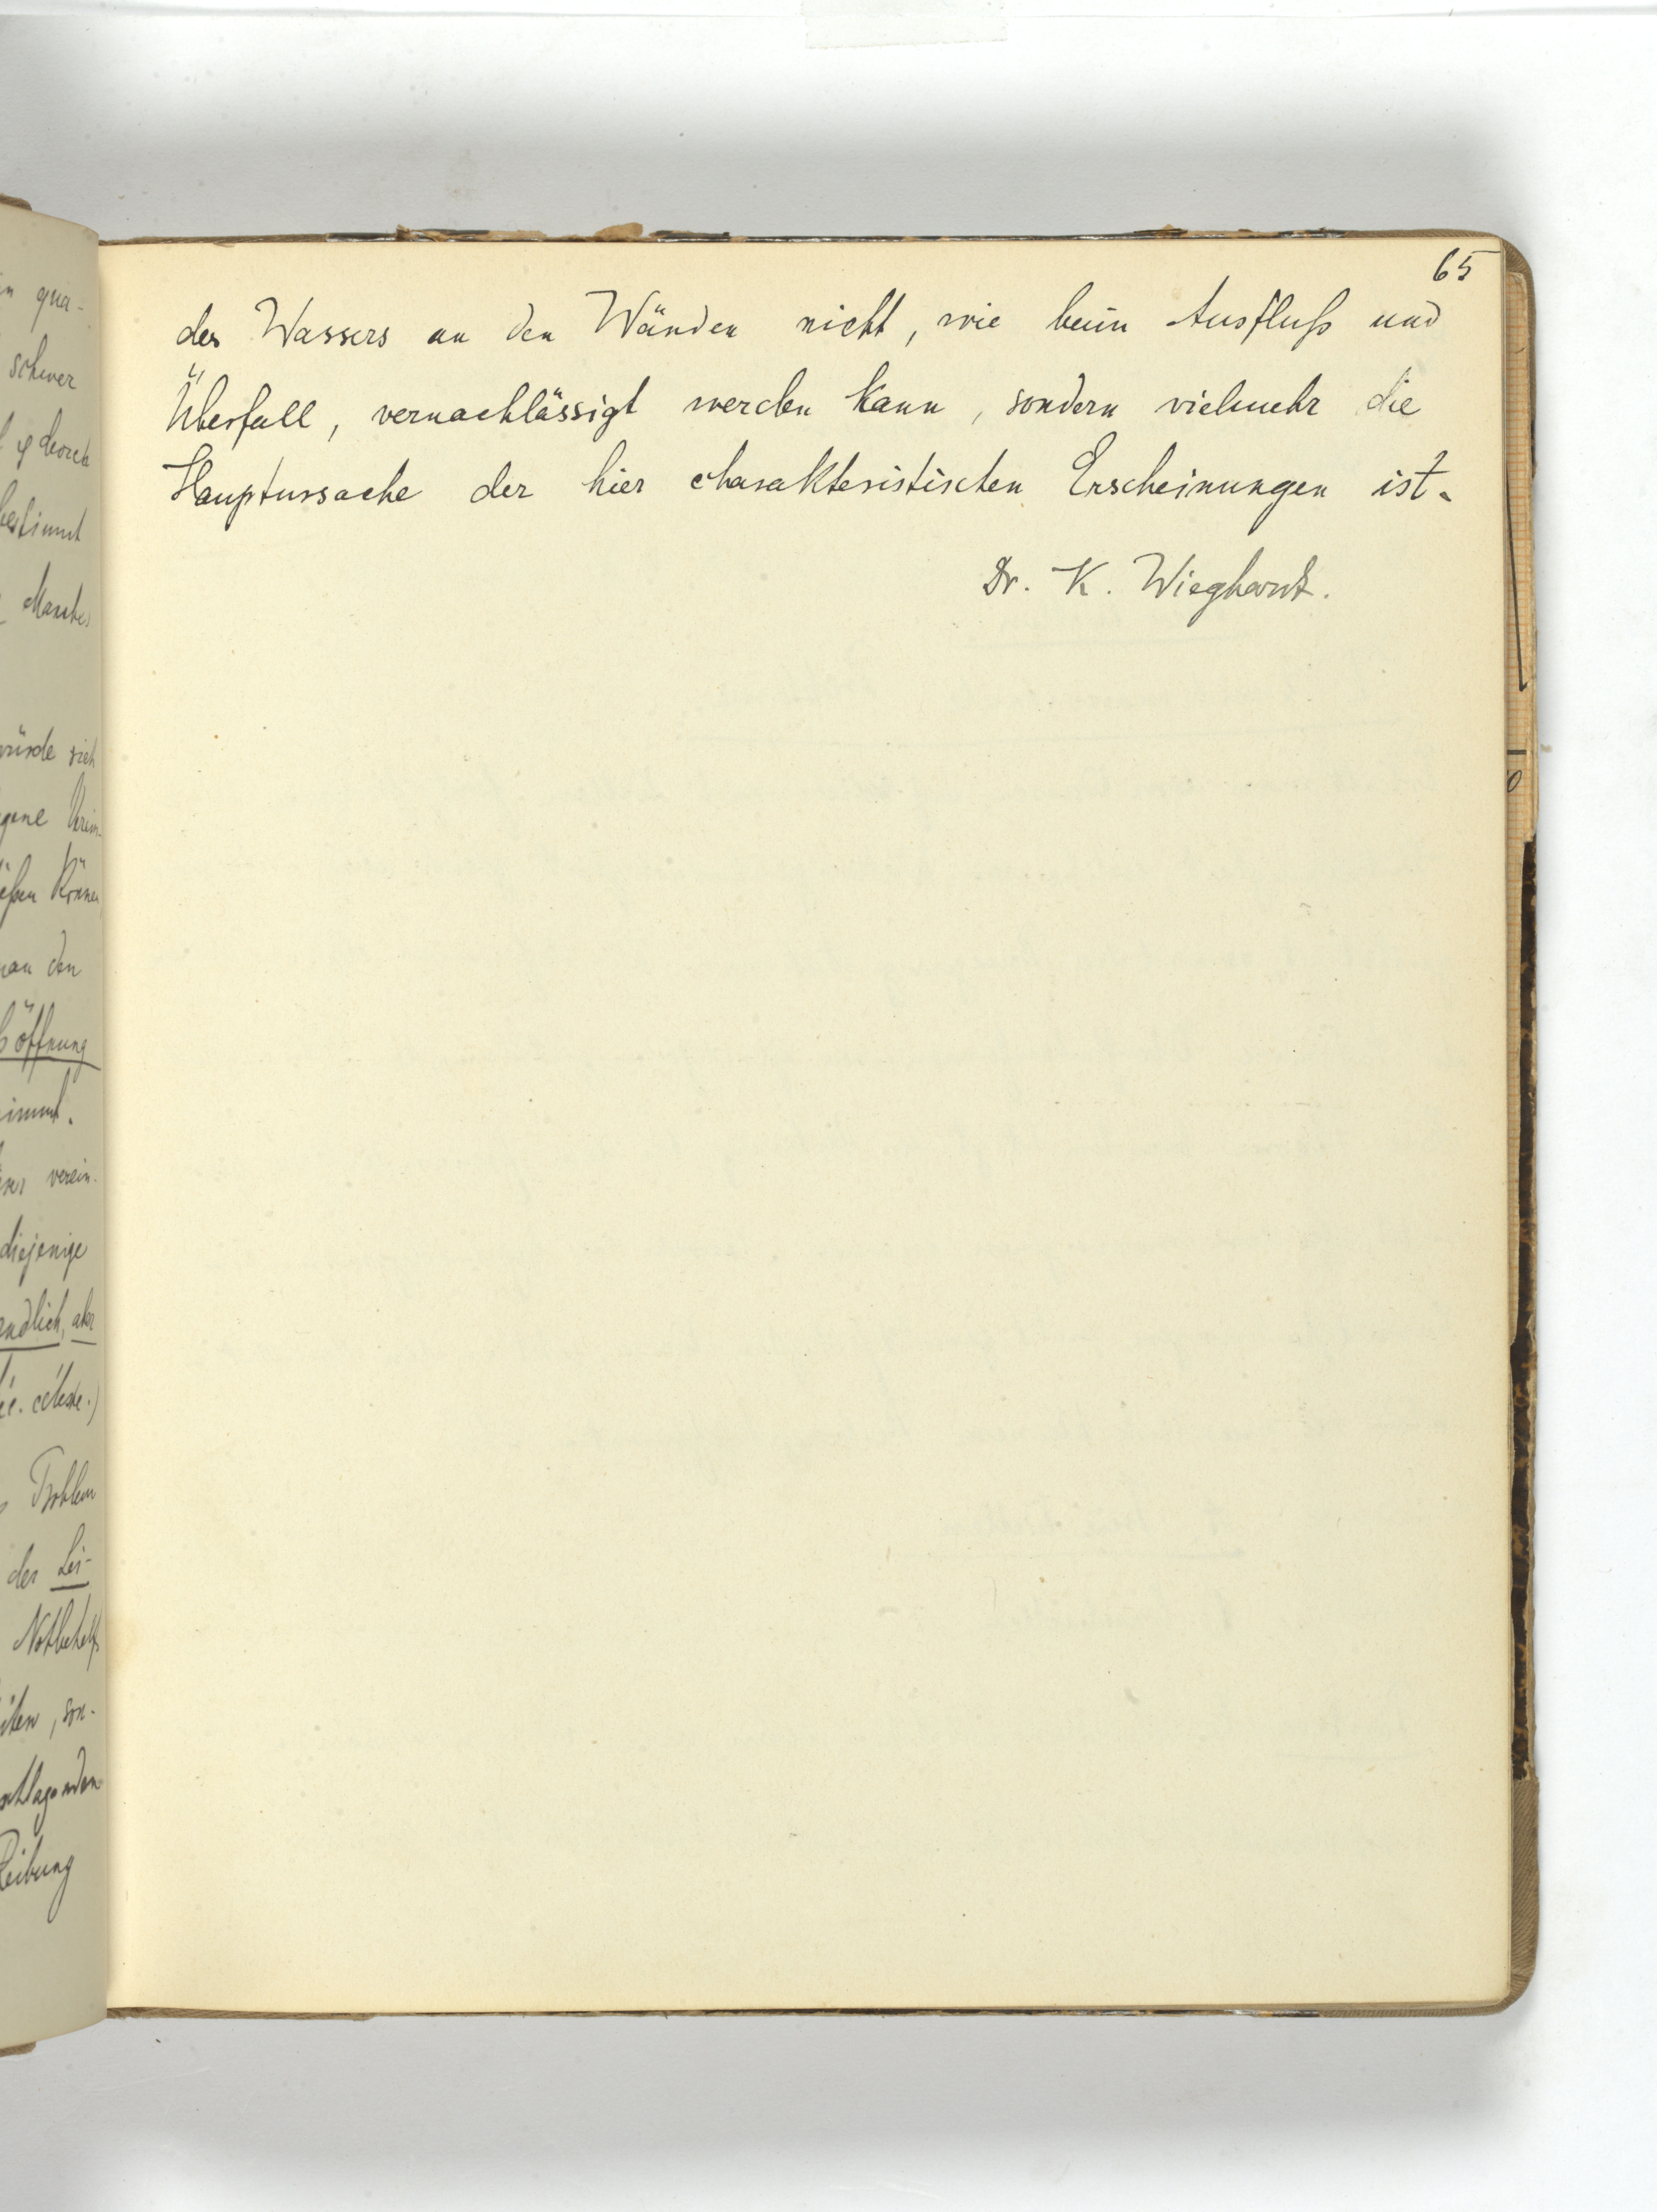 n qua-
schwer
durch
bestimmt
würde sich
können
man den
öffnung
verein-
diejenige
endlich, aber
céleste.)
Problem
der Lei-
Notbehelfs
, son-
Reibung
65
des Wassers an den Wänden nicht, wie beim Ausfluß und
Überfall, vernachlässigt werden kann, sondern vielmehr die
Hauptursache der hier charakteristischen Erscheinungen ist.
Dr. K. Wieghardt.